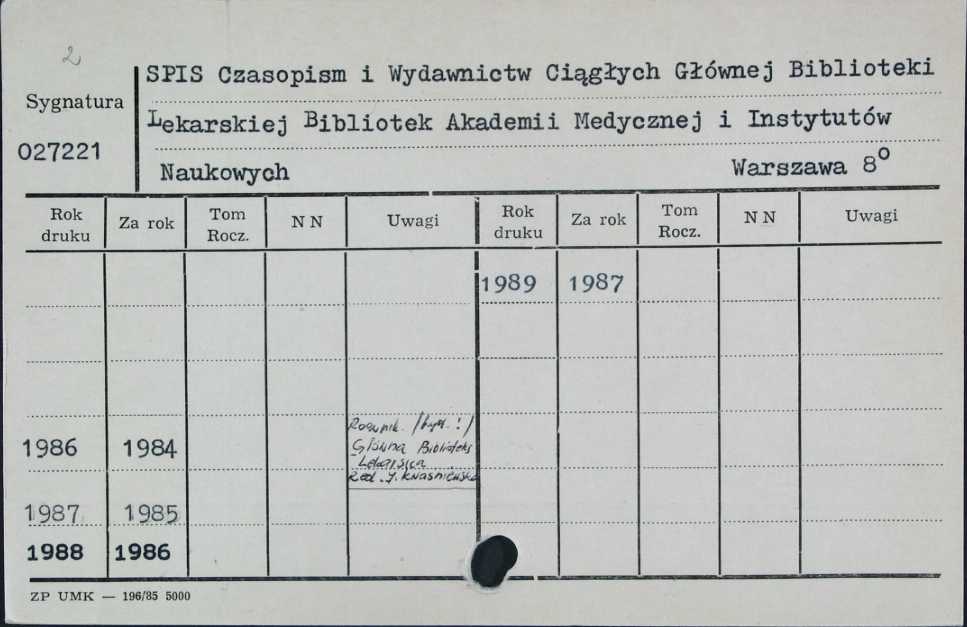 2
SPIS Czasopism i Wydawnictw Ciągłych Głównej Biblioteki
Sygnatura
Lekarskiej Bibliotek Akademii Medycznej i Instytutów
027221
Naukowych Warszawa 8°
Rok druku Za rok Tom Rocz. N N Uwagi Rok druku Za rok Tom Rocz. N N Uwagi
1989 1987
Główna Biblioteka
1986 1984
Lekarska
Red. J.
1987 1985
1988 1986
ZP UMK — 196/85 5000